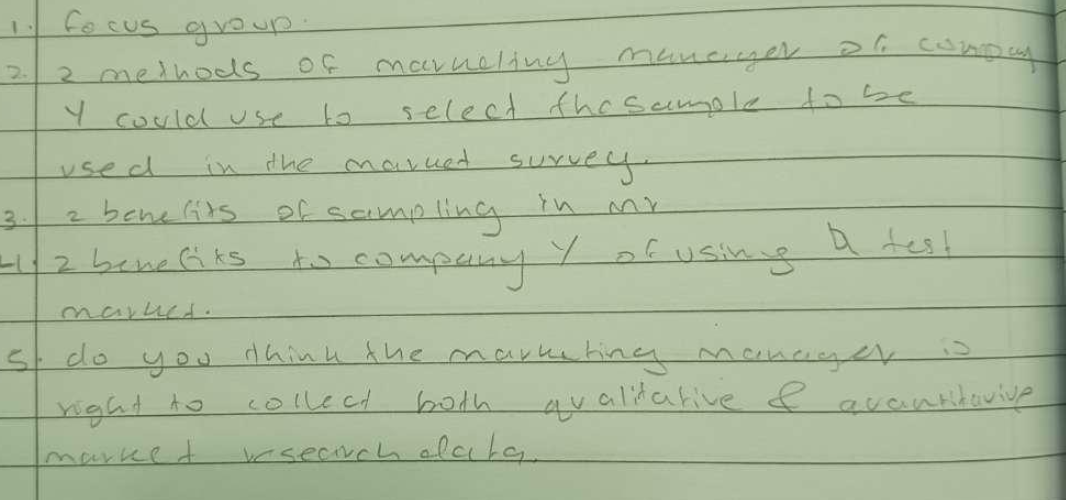 1. focus group.
2. 2 methods of marketing manager of company
Y could use to select the sample to be
used in the market survey.
3. 2 benefits of sampling in mr
4. 2 benefits to company Y of using a test
market.
5. do you think the marketing manager is
right to collect both qualitative & quantitative
market research data.